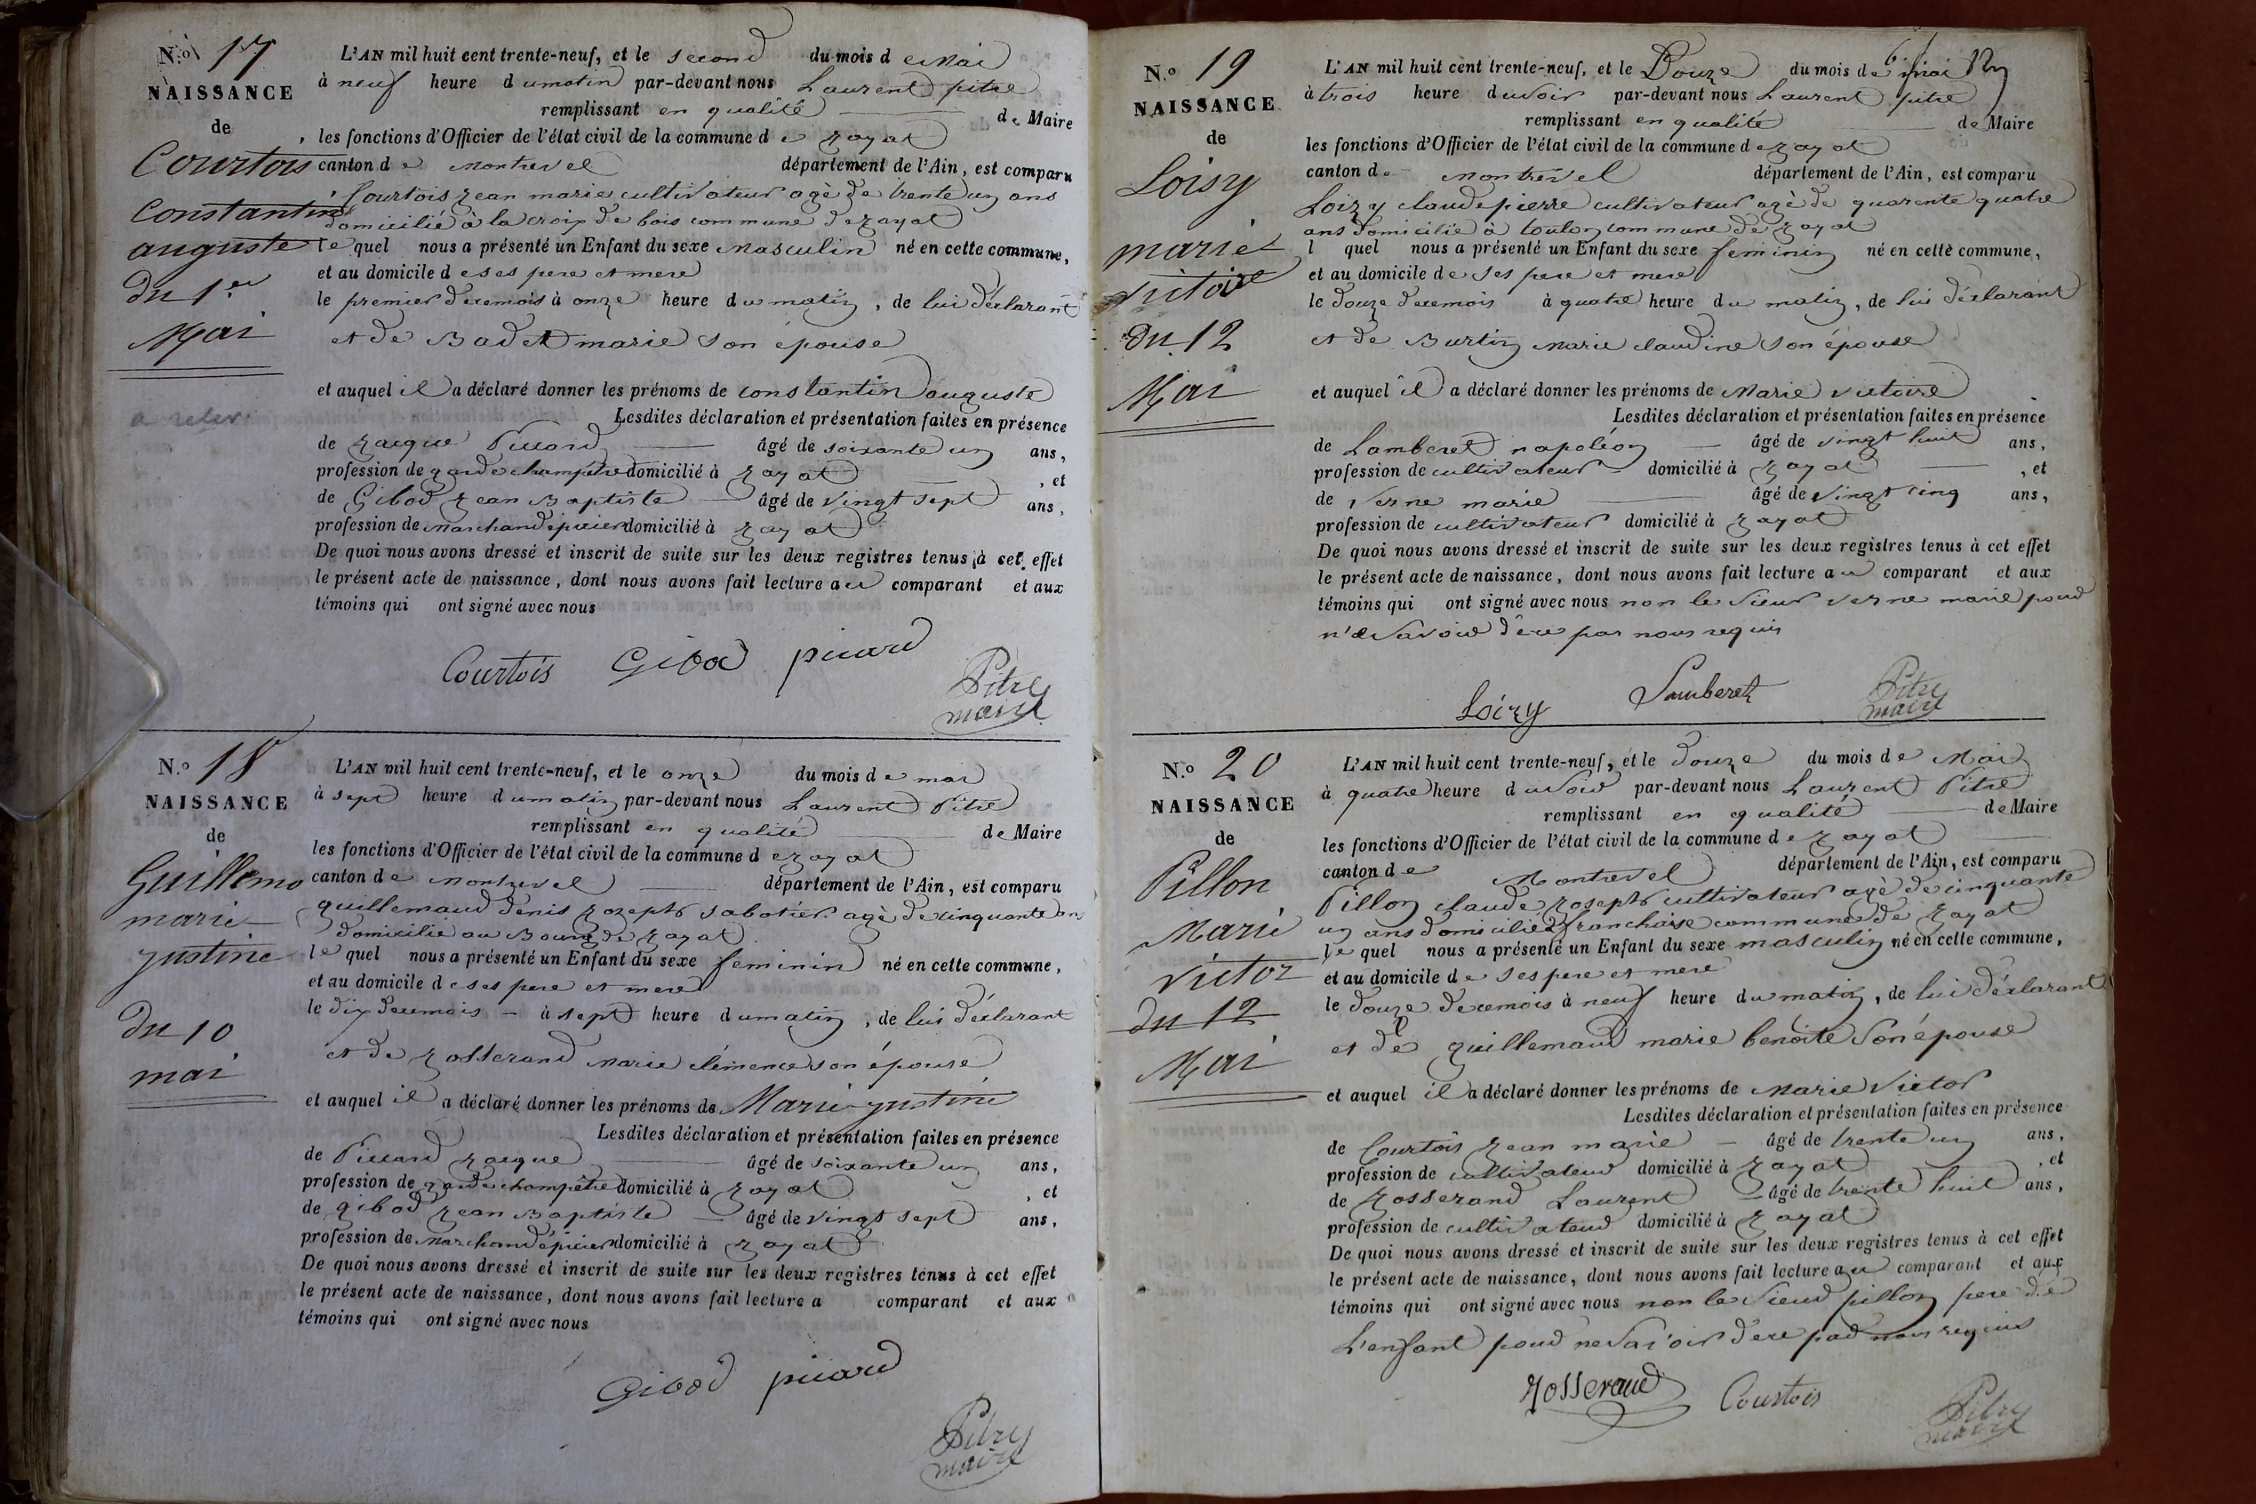 N.º 17
NAISSANCE
de
Courtois
Constantin
auguste
du 1.er
Mai
L'AN mil huit cent trente-neuf, et le second du mois de Mai
à neuf heure du matin par-devant nous Laurent pitre
remplissant en qualité de Maire
les fonctions d'Officier de l'état civil de la commune de zayat
canton de Montrevel département de l'Ain, est comparu
Courtois jean marie cultivateur agè de trente un ans
domicilié à la croix de bois commune de zayat
le quel nous a présenté un Enfant du sexe Masculin né en cette commune,
et au domicile de ses pere et mere
le premier de ce mois à onze heure du matin, de lui déclarant
et de Badet marie son épouse
et auquel il a déclaré donner les prénoms de constantin auguste
Lesdites déclaration et présentation faites en présence
de jacque Piccard âgé de soixante un ans,
profession de garde champêtre domicilié à zayat, et
de Gibod jean Baptiste âgé de vingt sept ans,
profession de Marchand épicier domicilié à zayat
De quoi nous avons dressé et inscrit de suite sur les deux registres tenus à cet effet
le présent acte de naissance, dont nous avons fait lecture au comparant et aux
témoins qui ont signé avec nous
Courtois Gibod picard
Pitre
maire
N.º 18
NAISSANCE
de
Guillemo
marie
justine
du 10
mai
L'AN mil huit cent trente-neuf, et le onze du mois de mai
à sept heure du matin par-devant nous Laurent Pitre
remplissant en qualité de Maire
les fonctions d'Officier de l'état civil de la commune de zayat
canton de Montrevel département de l'Ain, est comparu
guillemaud denis joseph sabotier agè de cinquante ans
domicilié au Bourg de zayat
le quel nous a présenté un Enfant du sexe feminin né en cette commune,
et au domicile de ses pere et mere
le dix de ce mois à sept heure du matin, de lui déclarant
et de josserand Marie clémence son épouse
et auquel il a déclaré donner les prénoms de Marie justine
Lesdites déclaration et présentation faites en présence
de Piccard jacque âgé de soixante un ans,
profession de garde champêtre domicilié à zayat, et
de gibod jean Baptiste âgé de vingt sept ans,
profession de Marchand épicier domicilié à zayat
De quoi nous avons dressé et inscrit de suite sur les deux registres tenus à cet effet
le présent acte de naissance, dont nous avons fait lecture a comparant et aux
témoins qui ont signé avec nous
Gibod picard
Pitre
maire
N.º 19
NAISSANCE
de
Loisy
marie
victoire
du 12
Mai
L'AN mil huit cent trente-neuf, et le Douze du mois de mai
à trois heure du soir par-devant nous Laurent pitre
remplissant en qualité de Maire
les fonctions d'Officier de l'état civil de la commune de zayat
canton de Montrevel département de l'Ain, est comparu
Loizy claude pierre cultivateur agè de quarente quatre
ans domicilié à toulon commune de zayat
l quel nous a présenté un Enfant du sexe feminin né en cette commune,
et au domicile de ses pere et mere
le douze de ce mois à quatre heure du matin, de lui déclarant
et de Burtin Marie claudine son épouse
et auquel il a déclaré donner les prénoms de Marie victoire
Lesdites déclaration et présentation faites en présence
de Lamberet napoléon âgé de vingt huit ans,
profession de cultivateur domicilié à zayat, et
de verne marie âgé de vingt cinq ans,
profession de cultivateur domicilié à zayat
De quoi nous avons dressé et inscrit de suite sur les deux registres tenus à cet effet
le présent acte de naissance, dont nous avons fait lecture au comparant et aux
témoins qui ont signé avec nous non le sieur verne marie pour
ne savoir de ce par nous requis
Loizy Lamberet
Pitre
maire
N.º 20
NAISSANCE
de
Pillon
Marie
victor
du 12
Mai
L'AN mil huit cent trente-neuf, et le douze du mois de Mai
à quatre heure du soir par-devant nous Laurent Pitre
remplissant en qualité de Maire
les fonctions d'Officier de l'état civil de la commune de zayat
canton de Montrevel département de l'Ain, est comparu
Pillon claude joseph cultivateur agè de cinquante
un ans domicilié à franchaise commune de zayat
le quel nous a présenté un Enfant du sexe masculin né en cette commune,
et au domicile de ses pere et mere
le douze de ce mois à neuf heure du matin, de lui déclarant
et de guillemaud marie benoite son épouse
et auquel il a déclaré donner les prénoms de Marie victor
Lesdites déclaration et présentation faites en présence
de Courtois jean marie âgé de trente un ans,
profession de cultivateur domicilié à zayat, et
de josserand Laurent âgé de trente huit ans,
profession de cultivateur domicilié à zayat
De quoi nous avons dressé et inscrit de suite sur les deux registres tenus à cet effet
le présent acte de naissance, dont nous avons fait lecture au comparant et aux
témoins qui ont signé avec nous non le sieur pillon pere de
L'enfant pour ne savoir de ce par nous requis
Josserand Courtois
Pitre
maire